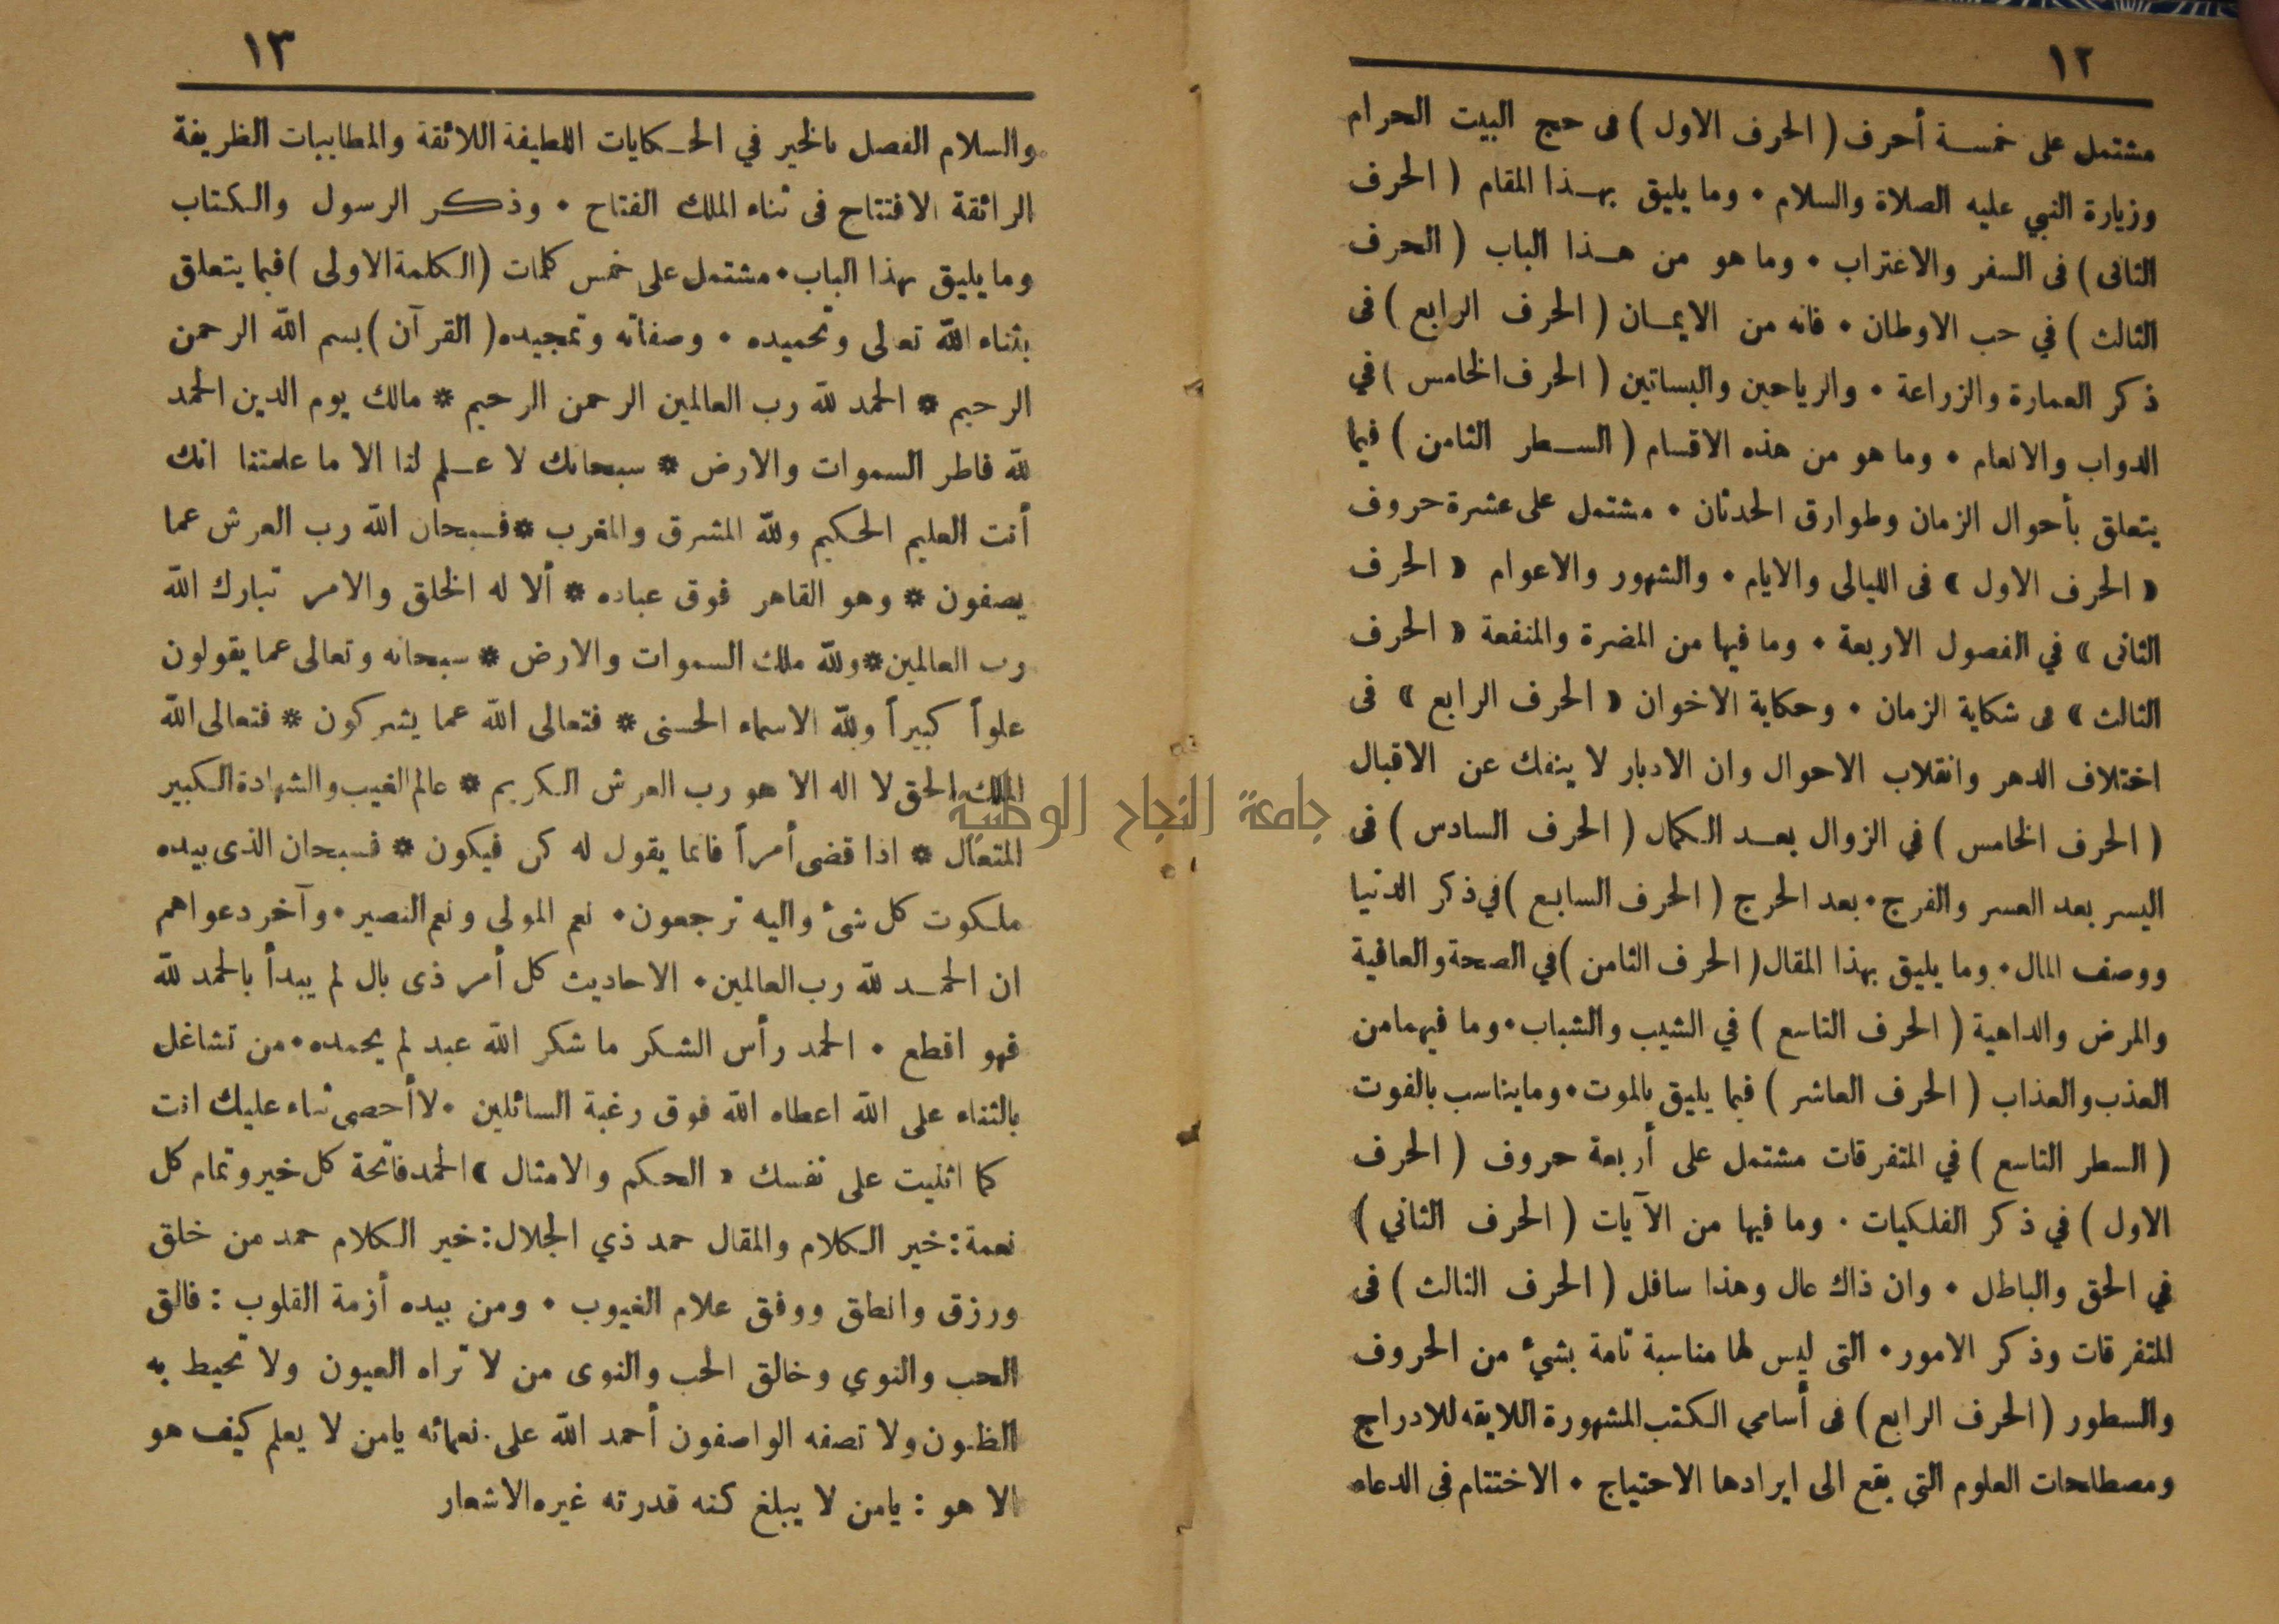 ١٢
مشتمل على خمسة أحرف ( الحرف الاول ) فى حج البيت الحرام
وزيارة النبي عليه الصلاة والسلام • وما يليق بهذا المقام ( الحرف
الثانى ) فى السفر والاغتراب • وما هو من هذا الباب ( الحرف
الثالث ) في حب الاوطان • فانه من الايمان ( الحرف الرابع ) فى
ذكر العمارة والزراعة • والرياحين والبساتين ( الحرف الخامس ) في
الدواب والانعام • وما هو من هذه الاقسام ( السطر الثامن ) فيما
يتعلق بأحوال الزمان وطوارق الحدثان • مشتمل على عشرة حروف
« الحرف الاول » فى الليالى والايام • والشهور والاعوام « الحرف
الثانى » في الفصول الاربعة • وما فيها من المضرة والمنفعة « الحرف
الثالث » فى شكاية الزمان • وحكاية الاخوان « الحرف الرابع » فى
اختلاف الدهر وانقلاب الاحوال وان الادبار لا ينفك عن الاقبال
( الحرف الخامس ) في الزوال بعد الكمال ( الحرف السادس ) فى
اليسر بعد العسر والفرج • بعد الحرج ( الحرف السابع ) في ذكر الدنيا
ووصف المال • وما يليق بهذا المقال ( الحرف الثامن ) في الصحة والعافية
والمرض والداهية ( الحرف التاسع ) في الشيب والشباب • وما فيهما من
العذب والعذاب ( الحرف العاشر ) فيما يليق بالموت • وما يناسب بالفوت
( السطر التاسع ) في المتفرقات مشتمل على أربعة حروف ( الحرف
الاول ) في ذكر الفلكيات . وما فيها من الآيات ( الحرف الثاني )
في الحق والباطل • وان ذاك عال وهذا سافل ( الحرف الثالث ) فى
المتفرقات وذكر الامور • التى ليس لها مناسبة تامة بشيء من الحروف
والسطور ( الحرف الرابع ) فى أسامي الكتب المشهورة اللايقه للادراج
ومصطلحات العلوم التي يقع الى ايرادها الاحتياج • الاختتام فى الدعاء
١٣
والسلام الفصل بالخير في الحكايات اللطيفة اللائقة والمطايبات الظريفة
الرائقة الافتتاح فى ثناء الملك الفتاح • وذكر الرسول والكتاب
وما يليق بهذا الباب • مشتمل على خمس كلمات ( الكلمة الاولى ) فيما يتعلق
بثناء الله تعالى وتحميده • وصفاته وتمجيده ( القرآن ) بسم الله الرحمن
الرحيم * الحمد لله رب العالمين الرحمن الرحيم * مالك يوم الدين الحمد
لله فاطر السموات والارض * سبحانك لا علم لنا الا ما علمتنا انك
أنت العليم الحكيم ولله المشرق والمغرب * فسبحان الله رب العرش عما
يصفون * وهو القاهر فوق عباده * ألا له الخلق والامر تبارك الله
رب العالمين * ولله ملك السموات والارض * سبحانه وتعالى عما يقولون
علواً كبيراً ولله الاسماء الحسنى * فتعالى الله عما يشركون * فتعالى الله
الملك الحق لا اله الا هو رب العرش الكريم * عالم الغيب والشهادة الكبير
المتعال * اذا قضى أمراً فانما يقول له كن فيكون * فسبحان الذى بيده
ملكوت كل شئ واليه ترجعون • نعم المولى ونعم النصير • وآخر دعواهم
ان الحمد لله رب العالمين • الاحاديث كل أمر ذى بال لم يبدأ بالحمد لله
فهو اقطع • الحمد رأس الشكر ما شكر الله عبد لم يحمده • من تشاغل
بالثناء على الله اعطاه الله فوق رغبة السائلين • لا أحصى ثناء عليك انت
كما اثنيت على نفسك « الحكم والامثال » الحمد فاتحة كل خير وتمام كل
نعمة : خير الكلام والمقال حمد ذي الجلال : خير الكلام حمد من خلق
ورزق وانطق ووفق علام الغيوب • ومن بيده أزمة القلوب : فالق
الحب والنوي وخالق الحب والنوى من لا تراه العيون ولا تحيط به
الظنون ولا تصفه الواصفون أحمد الله على نعمائه يامن لا يعلم كيف هو
الا هو : يامن لا يبلغ كنه قدرته غيره الاشعار
جامعة النجاح الوطنية